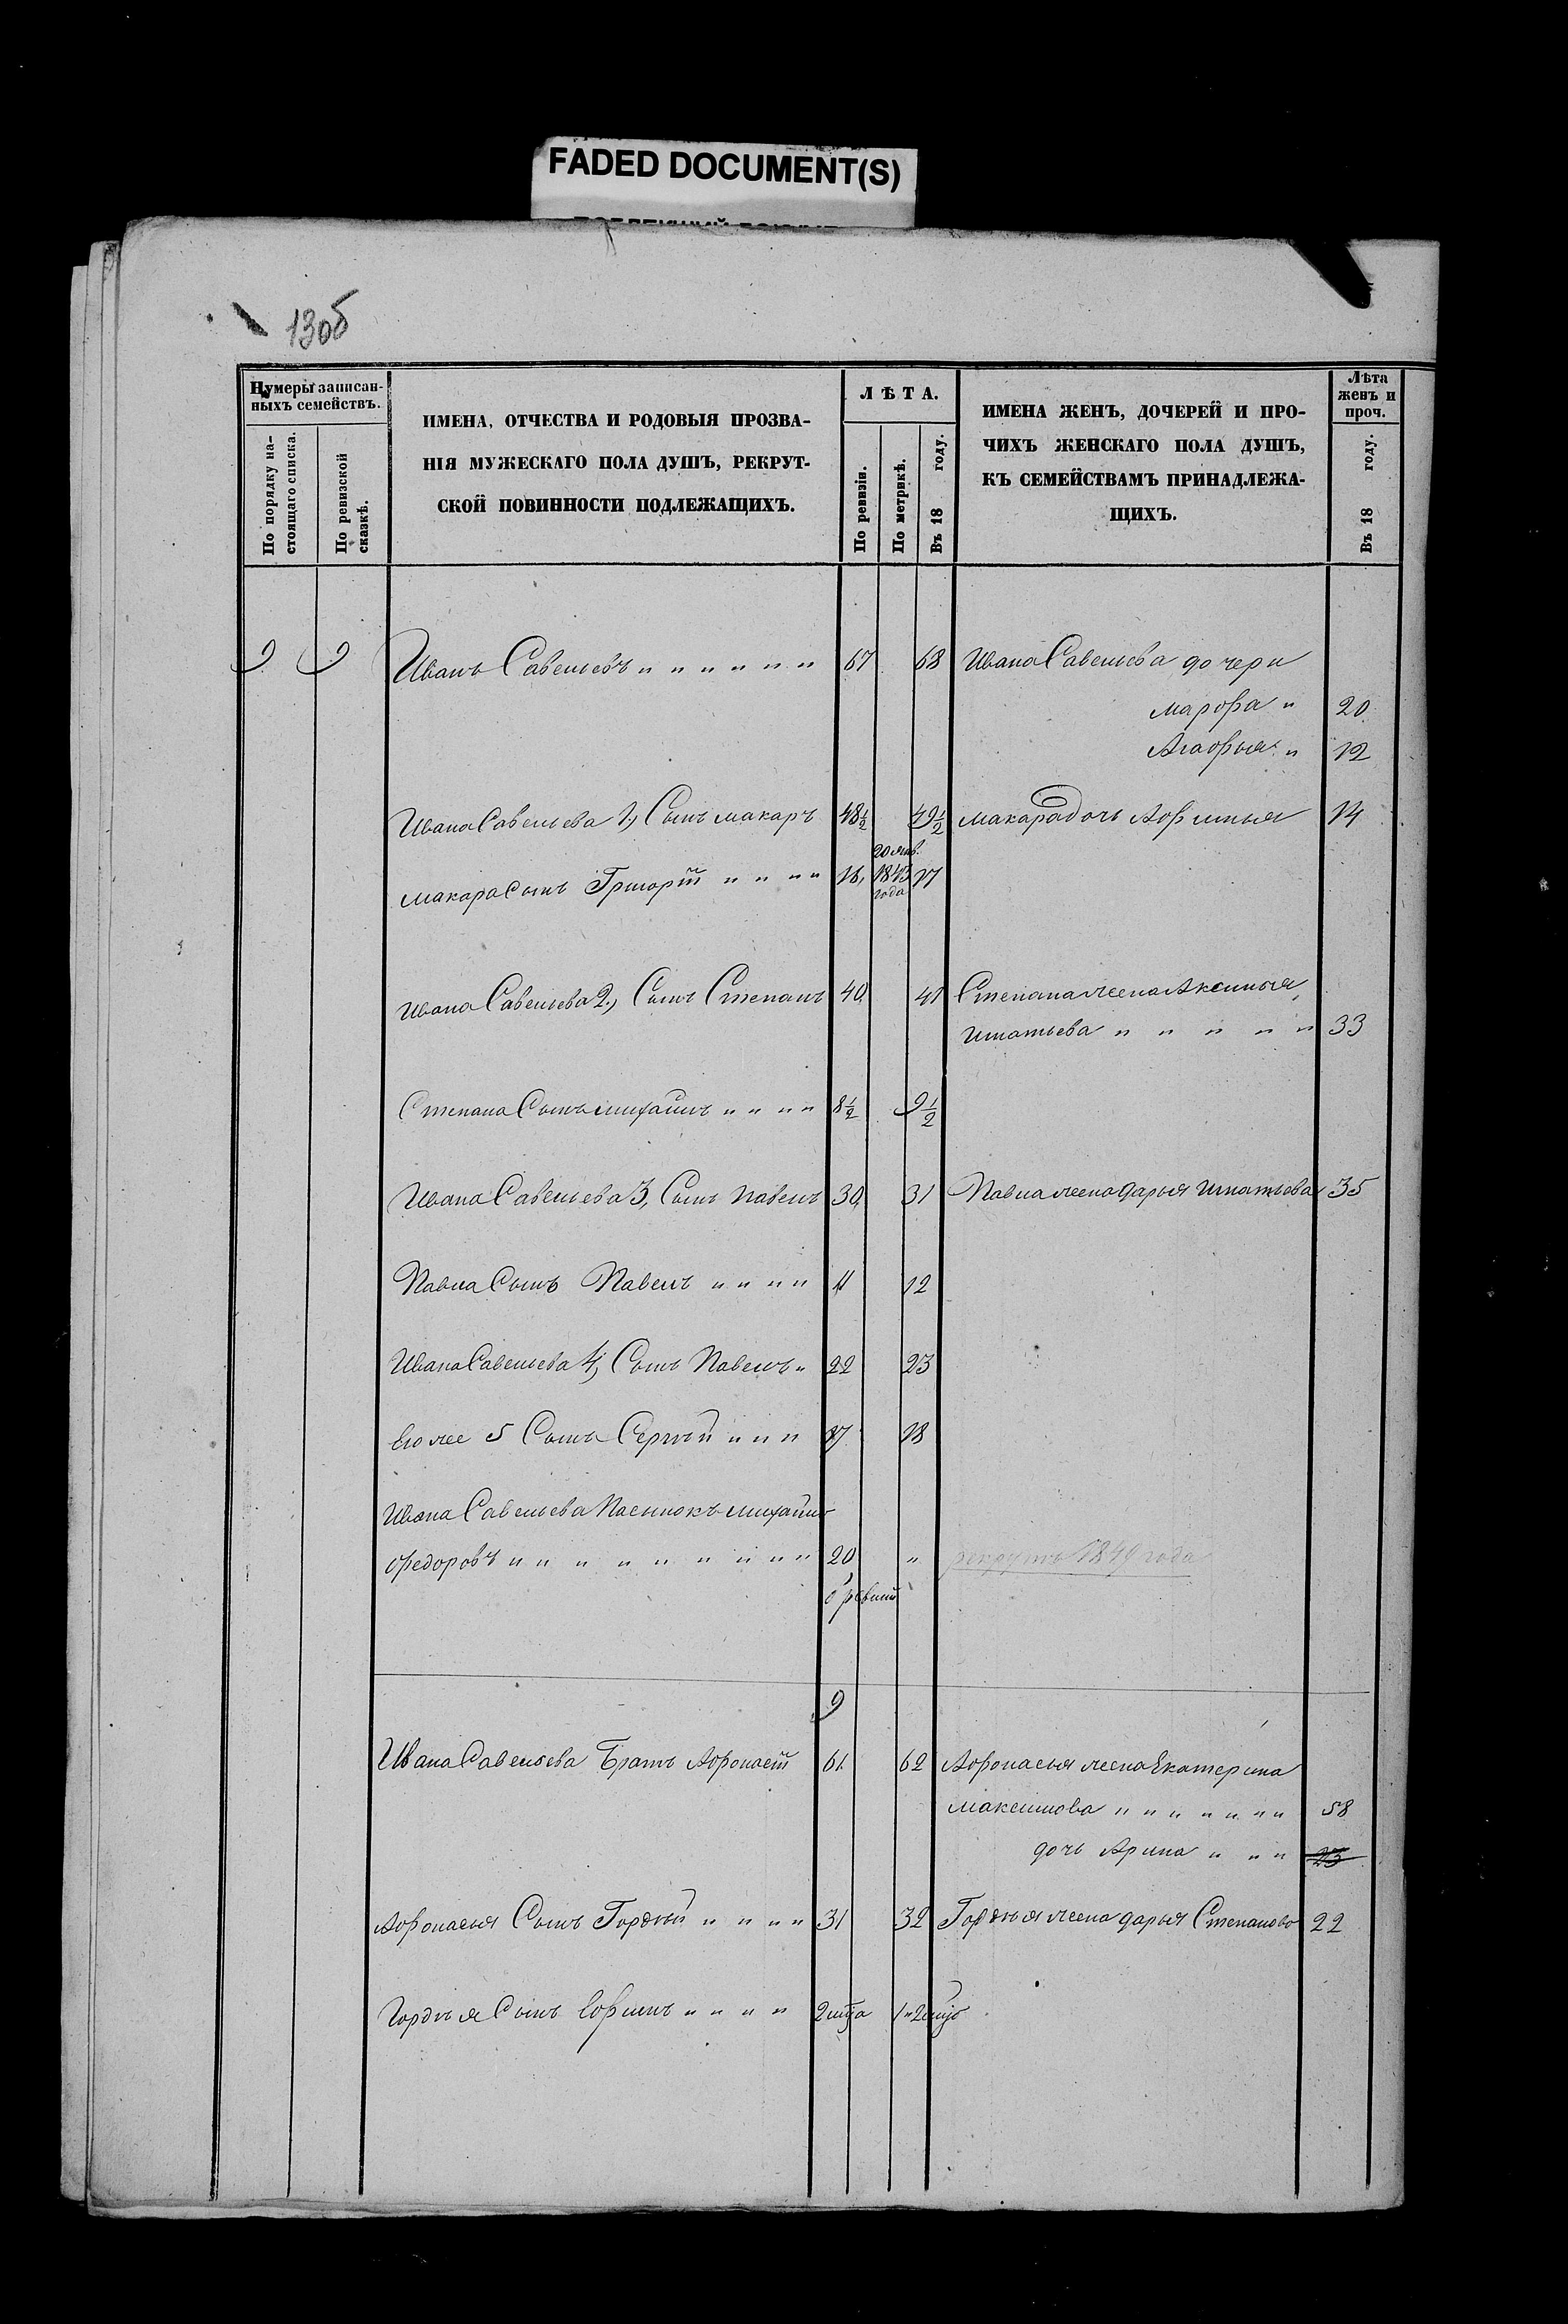 FADED DOCUMENT(S)
130б
Нумеры записан-
ныхъ семействъ.
По порядку на-
стоящаго списка.
По ревизской
сказкѣ.
ИМЕНА, ОТЧЕСТВА И РОДОВЫЯ ПРОЗВА-
НІЯ МУЖЕСКАГО ПОЛА ДУШЪ, РЕКРУТ-
СКОЙ ПОВИННОСТИ ПОДЛЕЖАЩИХЪ.
ЛѢТА.
По ревизіи.
По метрикѣ.
Въ 18 году.
ИМЕНА ЖЕНЪ, ДОЧЕРЕЙ И ПРО-
ЧИХЪ ЖЕНСКАГО ПОЛА ДУШЪ,
КЪ СЕМЕЙСТВАМЪ ПРИНАДЛЕЖА-
ЩИХЪ.
Лѣта
женъ и
проч.
Въ 18 году.
9 9 Иванъ Савельевъ " " " " " " 67 68 Ивана Савельева дочери
Марфа " 20
Агафья " 12
Ивана Савельева 1, Сынъ Макаръ 48½ 49½ Макара дочь Афимья 14
20 янв.
Макара Сынъ Григорій " " " " 16, 1843 17
года
Ивана Савельева 2, Сынъ Степанъ 40 41 Степана жена Аксинья
Игнатьева " " " " " 33
Степана Сынъ Михайлъ " " " " 8½ 9½
Ивана Савельева 3, Сынъ Павелъ 30, 31 Павла жена Дарья Игнатьева 35
Павла Сынъ Павелъ " " " " 11 12
Ивана Савельева 4, Сынъ Павелъ " 22 23
Его же 5 Сынъ Сергѣй " " " 17 18
Ивана Савельева Пасынокъ Михайлъ
Федоровъ " " " " " " " " " 20 " рекрутъ 1849 года
9
Ивана Савельева Братъ Афонасій 61 62 Афонасья жена Екатерина
Максимова " " " " " " " 58
дочь Арина " " " 23
Афонасья Сынъ Гордѣй " " " " 31 32 Гордѣя жена Дарья Степанова 22
Гордѣя Сынъ Ефимъ " " " "